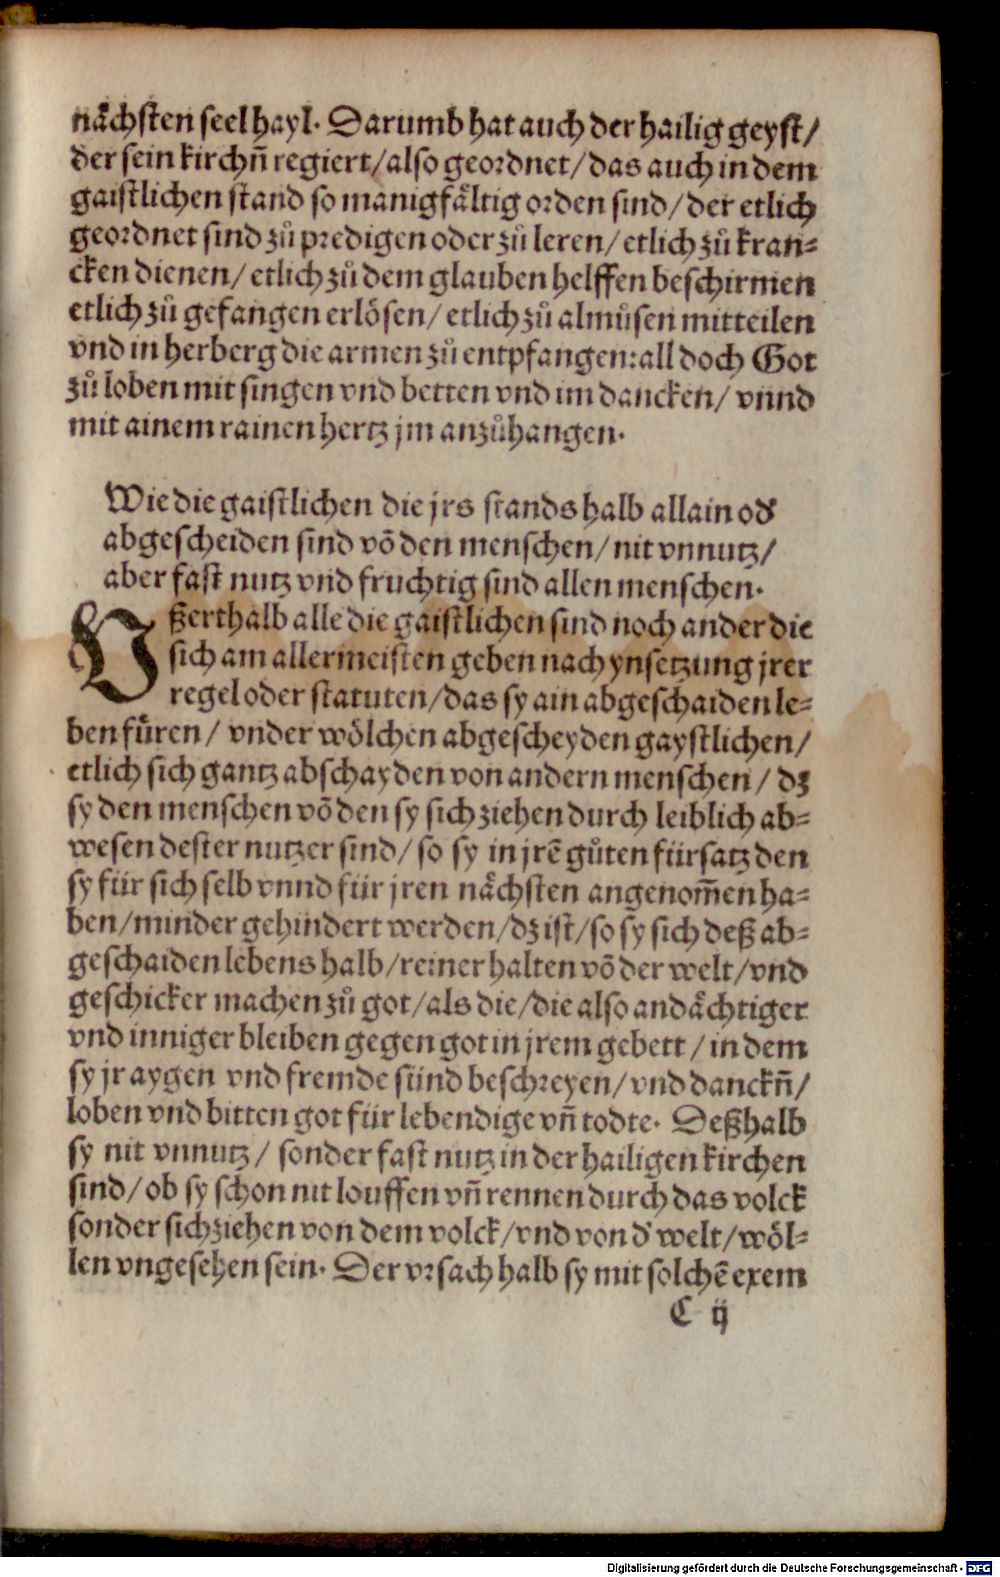 nächsten seel hayl. Darumb hat auch der hailig geyst/
der sein kirchñ regiert/also geordnet/das auch in dem
gaistlichen stand so manigfältig orden sind/der etlich
geordnet sind zů predigen oder zů leren/etlich zů kran-
cken dienen/ etlich zů dem glauben helffen beschirmen
etlich zů gefangen erlösen/ etlich zů almůsen mitteilen
vnd in herberg die armen zů entpfangen:all doch Got
zů loben mit singen vnd betten vnd im dancken/ vnnd
mit ainem rainen hertz jm anzůhangen.
Wie die gaistlichen die jrs stands halb allain oď
abgescheiden sind võ den menschen/nit vnnutz/
aber fast nutz vnd fruchtig sind allen menschen.
Vßerthalb alle die gaistlichen sind noch ander die
sich am allermeisten geben nach ynsetzung jrer
regel oder statuten/das sy ain abgeschaiden le-
ben fůren/ vnder wölchen abgescheyden gaystlichen/
etlich sich gantz abschayden von andern menschen/ dz
sy den menschen võ den sy sich ziehen durch leiblich ab-
wesen dester nutzer sind/ so sy in jrẽ gůten fürsatz den
sy für sich selb vnnd für jren nächsten angenom̃en ha-
ben/minder gehindert werden/dz ist/so sy sich deß ab-
geschaiden lebens halb/reiner halten võ der welt/vnd
geschicker machen zů got/als die/die also andächtiger
vnd inniger bleiben gegen got in jrem gebett / in dem
sy jr aygen vnd fremde sünd beschreyen/ vnd danckñ/
loben vnd bitten got für lebendige vñ todte. Deßhalb
sy nit vnnutz/ sonder fast nutz in der hailigen kirchen
sind/ob sy schon nit louffen vñ rennen durch das volck
sonder sich ziehen von dem volck/vnd von ď welt/wöl-
len vngesehen sein. Der vrsach halb sy mit solchẽ exem
C ij
Digitalisierung gefördert durch die Deutsche Forschungsgemeinschaft - DFG